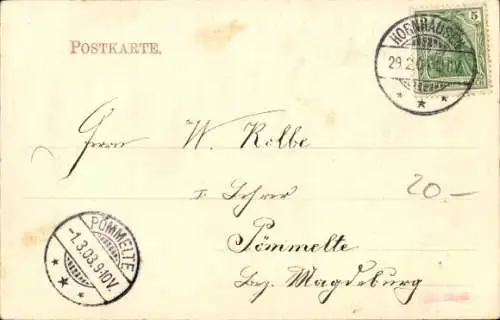 POSTKARTE.
5
HORNHAUSEN
Herrn W. Kolbe
Lehrer
20.-
Pömmelte
Bez. Magdeburg
PÖMMELTE
-1.3.03.9-10V.